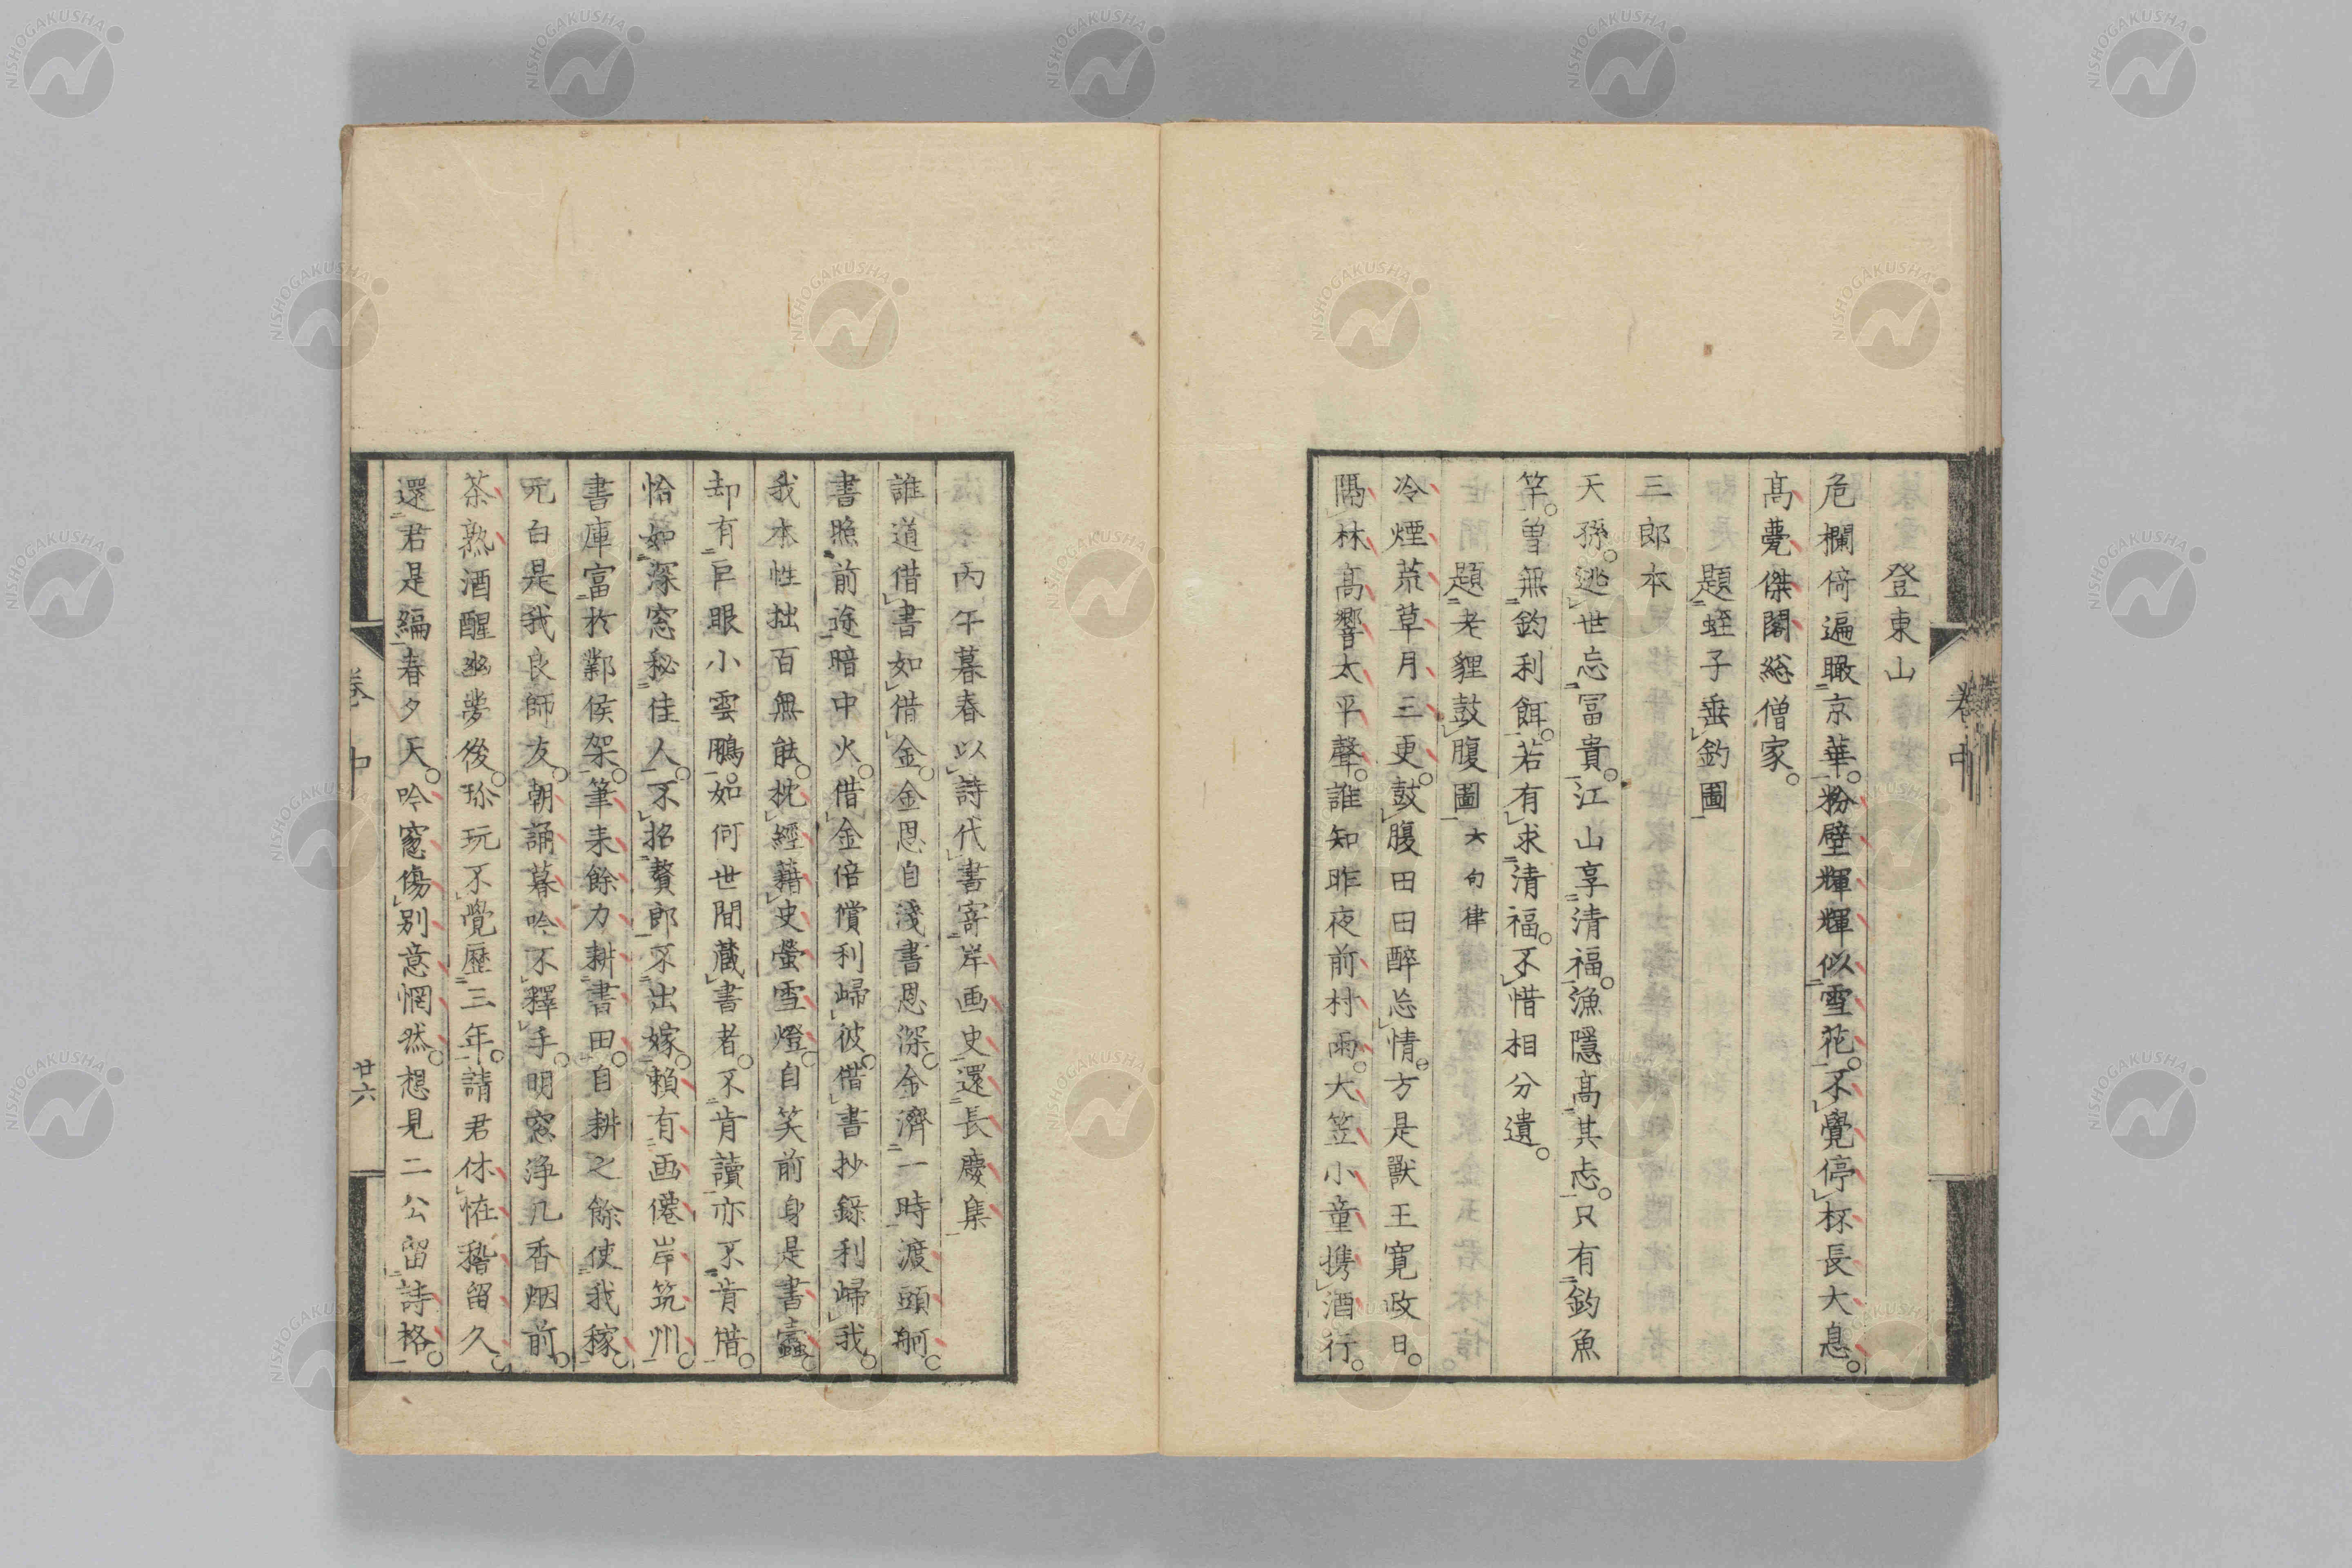 登東山
危欄倚遍瞰京華。粉壁輝輝似雪花。不覺停杯長大息。
高甍傑閣總僧家。
題蛭子垂釣圖
三郎本
天孫。逃世忘冨貴。江山享清福。漁隱高其志。只有釣魚
竿。曽無釣利餌。若有求清福。不惜相分遺。
題老貍鼓腹圖 六句律
冷煙荒草月三更。鼓腹田田醉忘情。方是獸王寛政日。
隔林高響太平聲。誰知昨夜前村雨。大笠小童携酒行。
卷中
丙午暮春以詩代書寄岸画史還長慶集
誰道借書如借金。金恩自淺書恩深。金濟一時渡頭舸。
書照前途暗中火。借金倍償利歸彼。借書抄錄利歸我。
我本性拙百無能。枕經藉史螢雪燈。自笑前身是書蠧。
却有巨眼小雲鵬。如何世間藏書者。不肯讀亦不肯借。
恰如深窓秘佳人。不招贅郎不出嫁。賴有画僊岸筑州。
書庫富於鄴侯架。筆耒餘力耕書田。自耕之餘使我稼。
元白是我良師友。朝誦暮吟不釋手。明窓浄几香烟前。
茶熟酒醒幽夢後。珎玩不覺歷三年。請君休恠稽留久。
還君是編春夕天。吟窓傷別意惘然。想見二公留詩格。
卷中
廿六
NISHOGAKUSHA